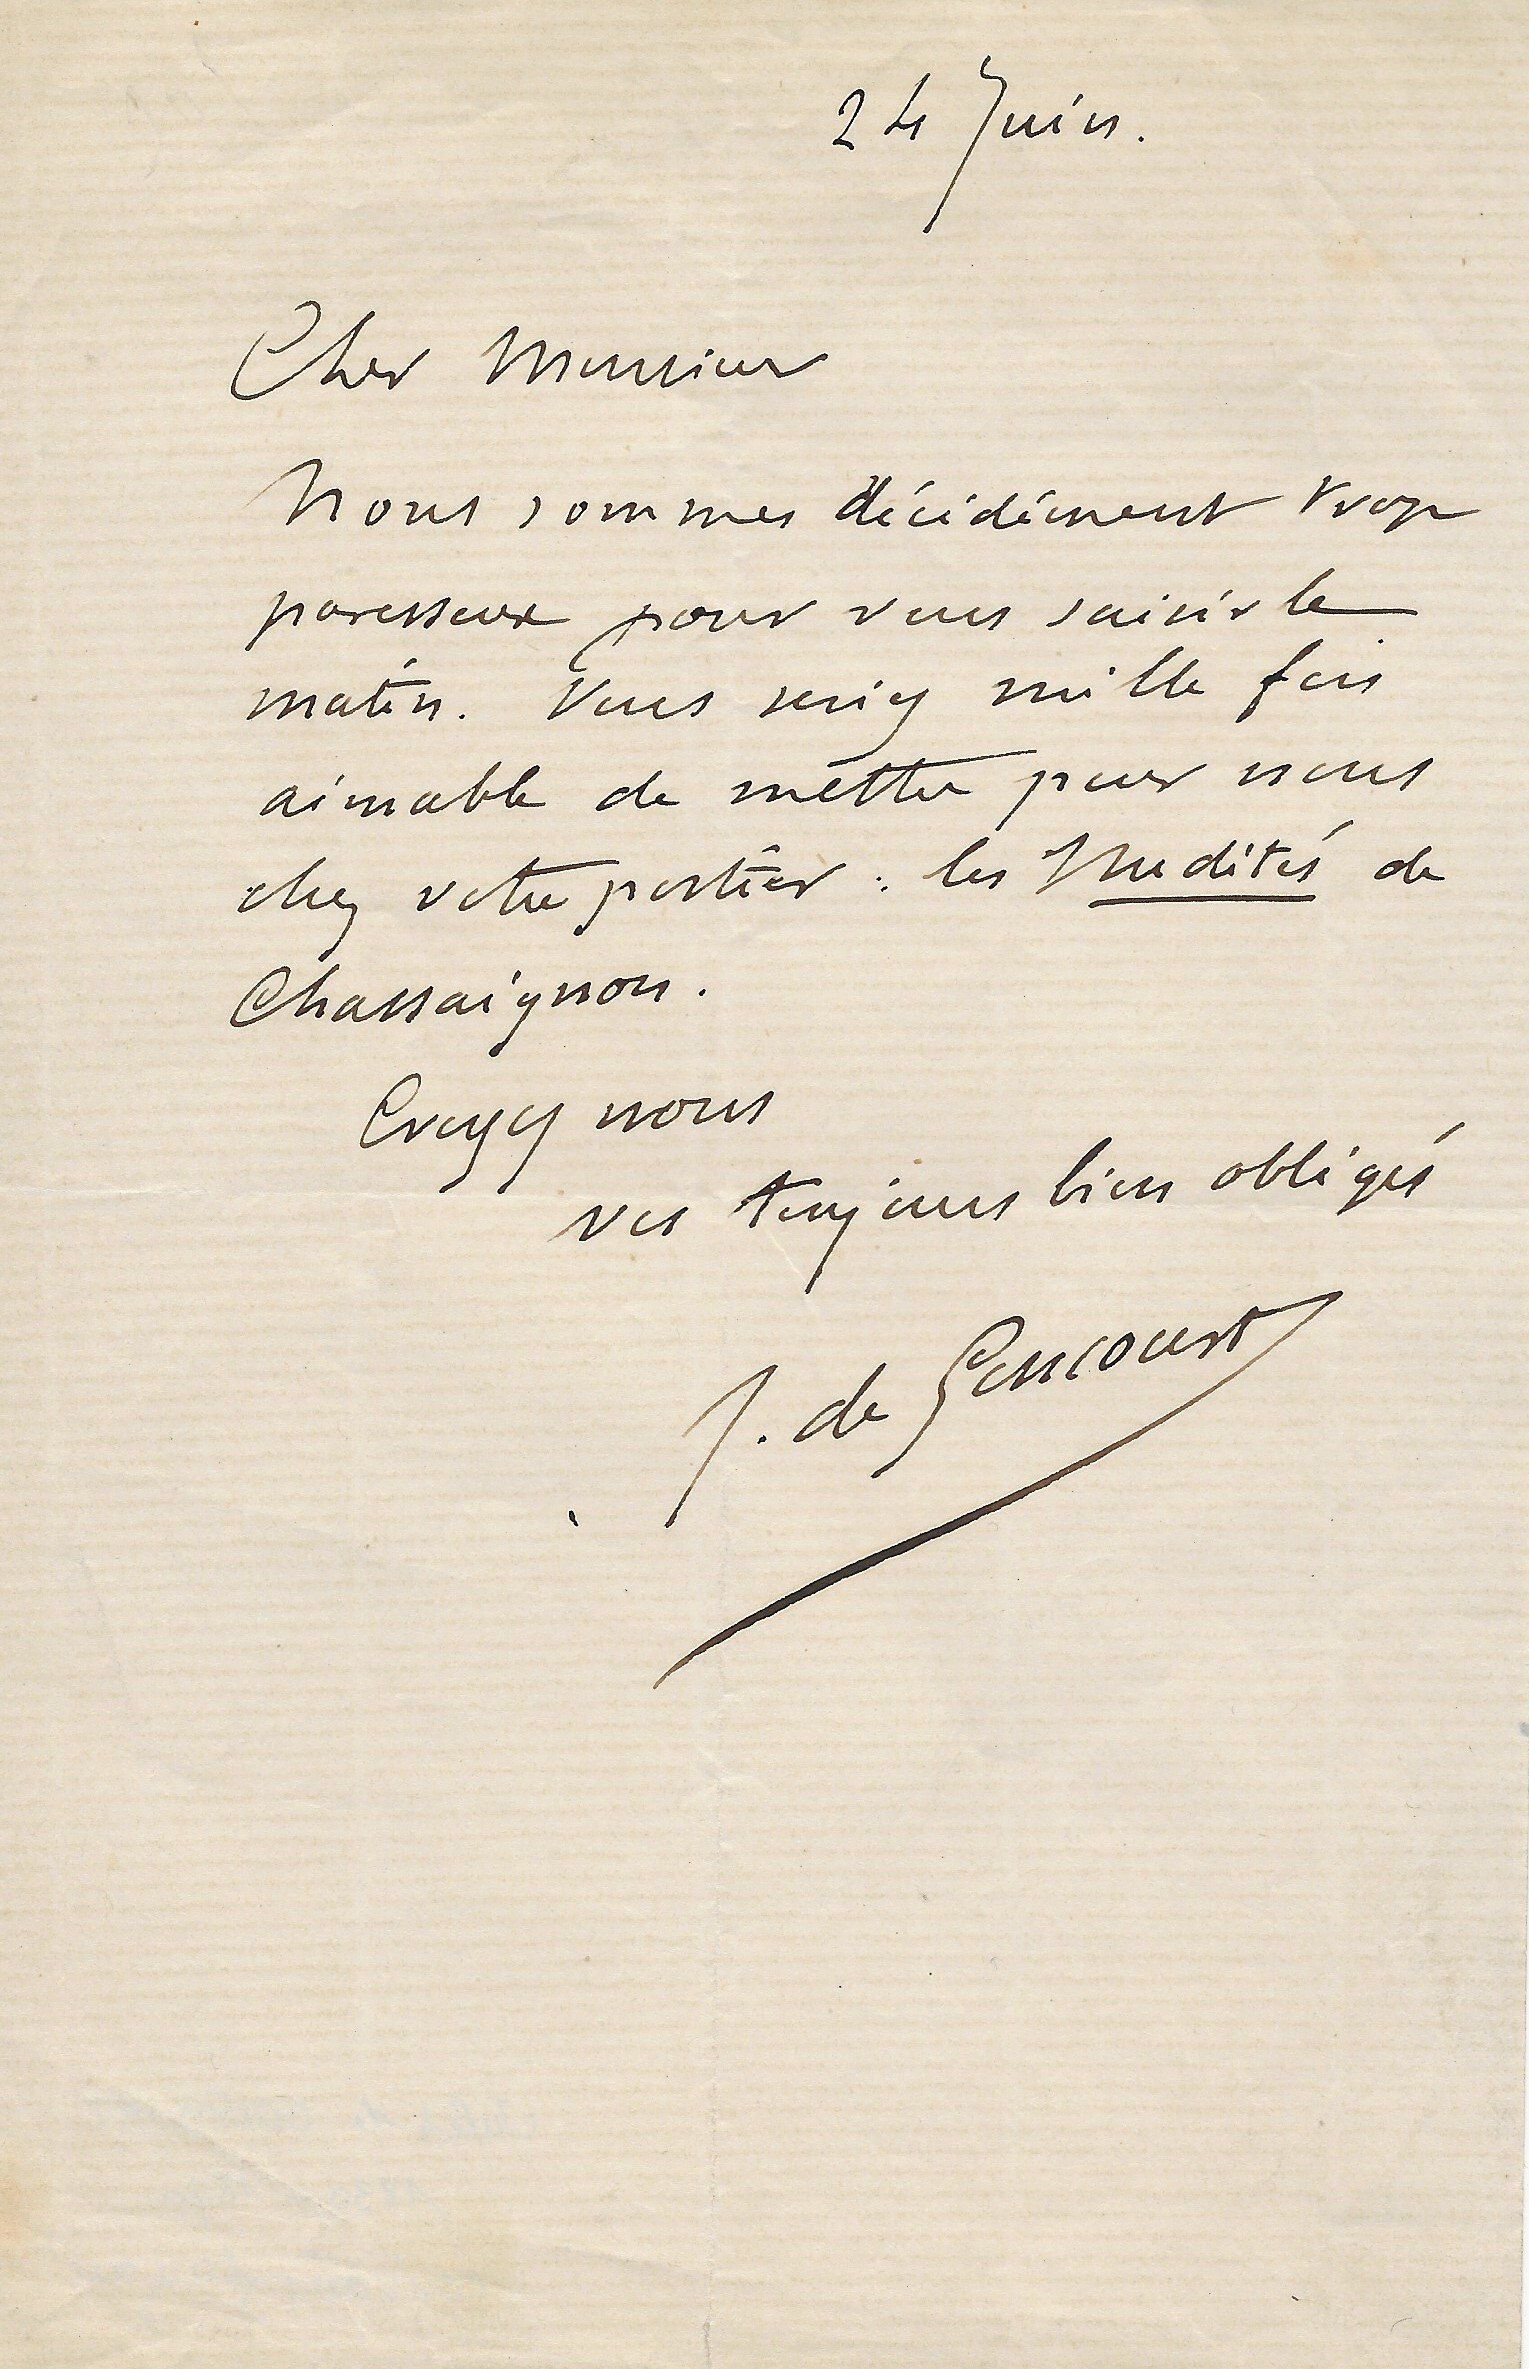 24 Juin.
Cher Monsieur
Nous sommes décidément trop
paresseux pour vous saisir le
matin. Vous seriez mille fois
aimable de mettre pour nous
chez votre portier : les Nudités de
Chassaignon.
Croyez nous
vos toujours bien obligés
J. de Goncourt